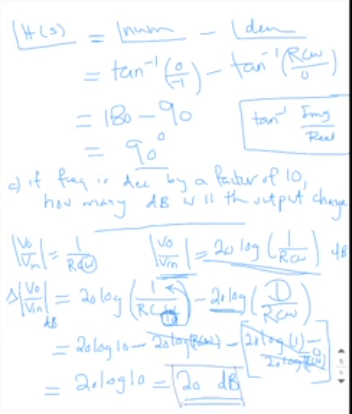 ∠H(s) = ∠num − ∠den
= tan⁻¹(0/-1) − tan⁻¹(RCω/0)
= 180 − 90
= 90°
tan⁻¹ Img/Real
c) if freq is dec by a factor of 10,
how many dB will the output change
|Vo/Vin| = 1/RCω   |Vo/Vin| = 20 log (1/RCω) dB
Δ|Vo/Vin|dB = 20log(1/RC(ω/10)) − 20log(1/RCω)
= 20log10 − 20log(RCω) − [20log(1) − 20log(RCω)]
= 20log10 = 20 dB